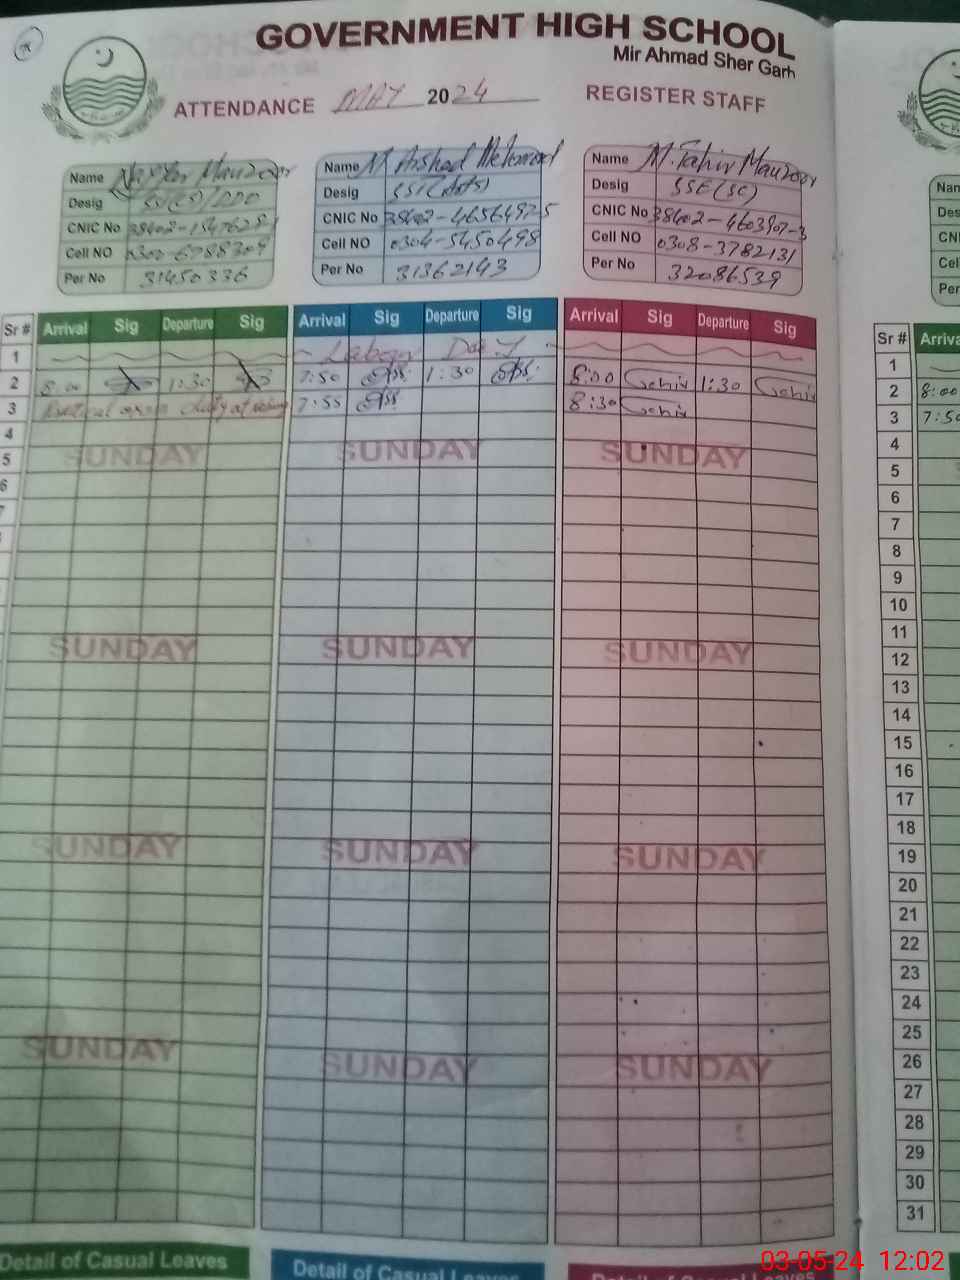 GOVERNMENT HIGH SCHOOL
Mir Ahmad Sher Garh
ATTENDANCE MAY 2024 REGISTER STAFF
Name
Desig
CNIC No
Cell NO
Per No 31450336
Name M Arshad Mehmood
Desig SST(Arts)
CNIC No
Cell NO 0304-5450498
Per No 31362143
Name M. Tahir Manzoor
Desig SSE(SC)
CNIC No 38402-4603907-3
Cell NO 0308-3782131
Per No 32086539
Sr # Arrival Sig Departure Sig Arrival Sig Departure Sig Arrival Sig Departure Sig
1 Labour Day
2 8:00 1:30 7:50 1:30 8:00 Tahir 1:30 Tahir
3 duty at 7:55 8:30 Tahir
4
5 SUNDAY SUNDAY SUNDAY
6
7
SUNDAY SUNDAY SUNDAY
SUNDAY SUNDAY SUNDAY
SUNDAY SUNDAY SUNDAY
Detail of Casual Leaves Detail of Casual Leaves
Nam
Des
CN
Cel
Per
Sr # Arriva
1
2 8:00
3 7:50
4
5
6
7
8
9
10
11
12
13
14
15
16
17
18
19
20
21
22
23
24
25
26
27
28
29
30
31
03-05-24 12:02